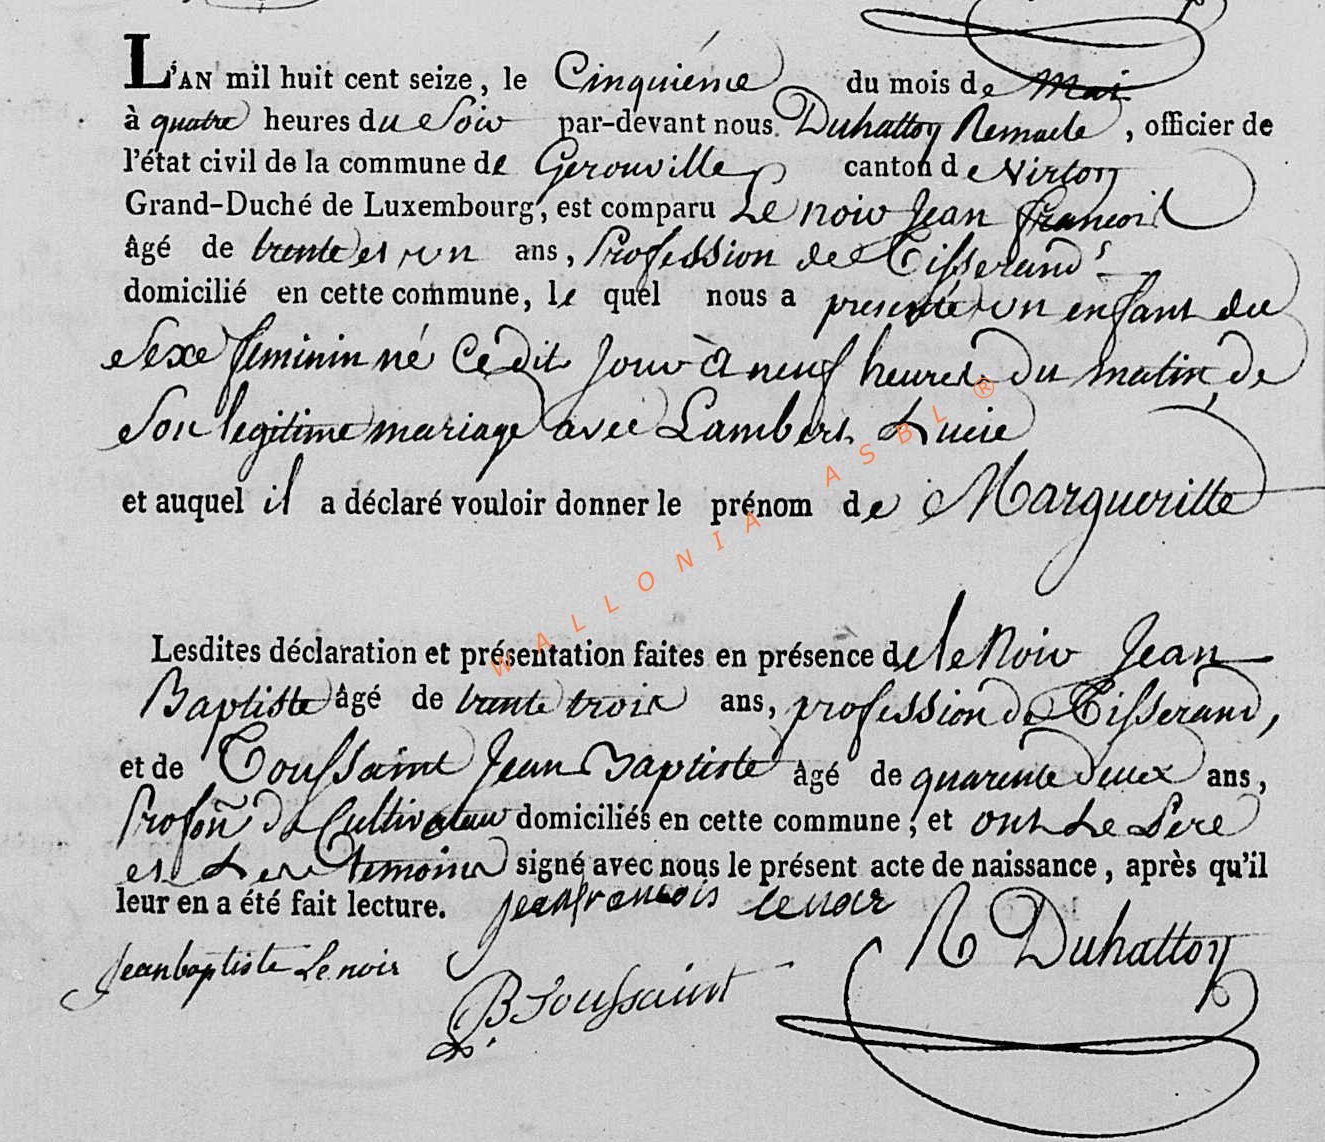 L'AN mil huit cent seize, le Cinquiéme du mois de Mai
à quatre heures du Soir par-devant nous Duhattoy Remacle, officier de
l'état civil de la commune de Gerouville canton de Virton
Grand-Duché de Luxembourg, est comparu Le noir Jean francois
âgé de trente et un ans, Profession de Tisserand
domicilié en cette commune, le quel nous a presenté un enfant du
Sexe feminin né Cedit Jour à neuf heures Du matin, de
Son legitime mariage avec Lambert Lucie
et auquel il a déclaré vouloir donner le prénom de Margueritte
Lesdites déclaration et présentation faites en présence de le Noir Jean
Baptiste âgé de trente trois ans, profession de Tisserand,
et de Toussaint Jean Baptiste âgé de quarente deux ans,
Profoñ de Cultivateur domiciliés en cette commune; et ont Le Pere
et Les temoins signé avec nous le présent acte de naissance, après qu'il
leur en a été fait lecture. jeanfrancois lenoir
jeanbaptiste Lenoir
B Toussaint
R Duhattoy
WALLONIA ASBL ®